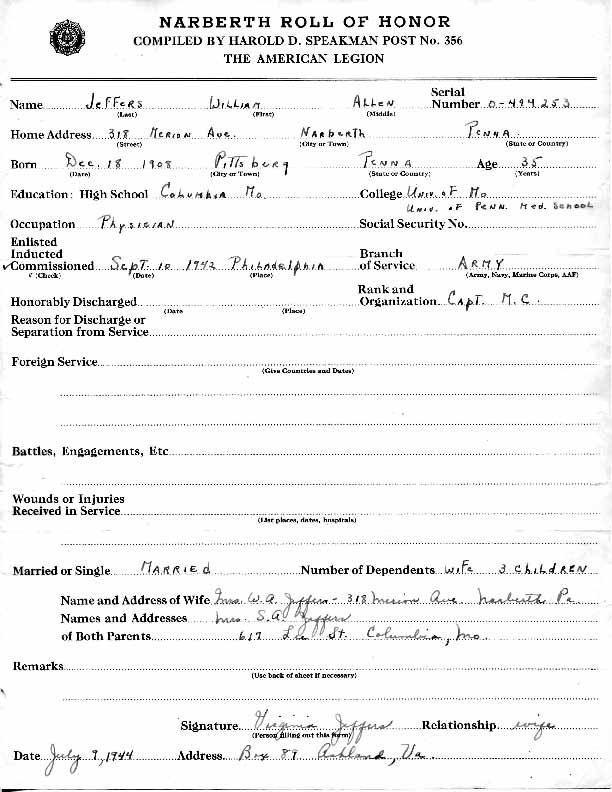 NARBERTH ROLL OF HONOR
COMPILED BY HAROLD D. SPEAKMAN POST No. 356
THE AMERICAN LEGION
Name JEFFERS WILLIAM ALLEN Serial Number O-494253
(Last) (First) (Middle)
Home Address 318 MERION AVE. NARBERTH PENNA
(Street) (City or Town) (State or Country)
Born DEC. 18 1908 PITTSBERG PENNA Age 35
(Date) (City or Town) (State or Country) (Years)
Education: High School COLUMBIA MO College UNIV. OF MO
UNIV. OF PENN. MED. SCHOOL
Occupation PHYSICIAN Social Security No.
Enlisted
Inducted Branch
✓Commissioned SEPT. 10 1942 PHILADELPHIA of Service ARMY
√ (Check) (Date) (Place) (Army, Navy, Marine Corps, AAF)
Rank and
Honorably Discharged Organization CAPT. M.C.
(Date (Place)
Reason for Discharge or
Separation from Service
Foreign Service
(Give Countries and Dates)
Battles, Engagements, Etc
Wounds or Injuries
Received in Service
(List places, dates, hospitals)
Married or Single MARRIED Number of Dependents WIFE 3 CHILDREN
Name and Address of Wife Mrs. W.A. Jeffers - 318 Merion Ave Narberth Pa
Names and Addresses Mrs. S.A. Jeffers
of Both Parents 617 Lee St. Columbia, Mo.
Remarks
(Use back of sheet if necessary)
Signature Virginia Jeffers Relationship wife
(Person filling out this form)
Date July 9, 1944 Address Box 89 Ashland, Va.